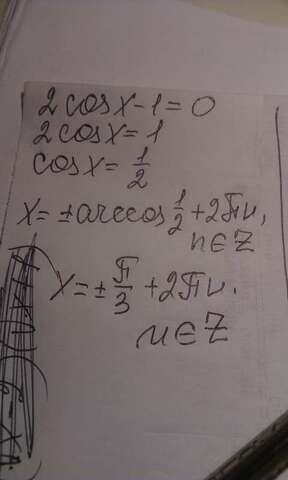 2cosx-1=0
2cosx=1
cosx=1/2
x=±arccos 1/2+2πn,
n∈Z
x=±π/3+2πn.
n∈Z